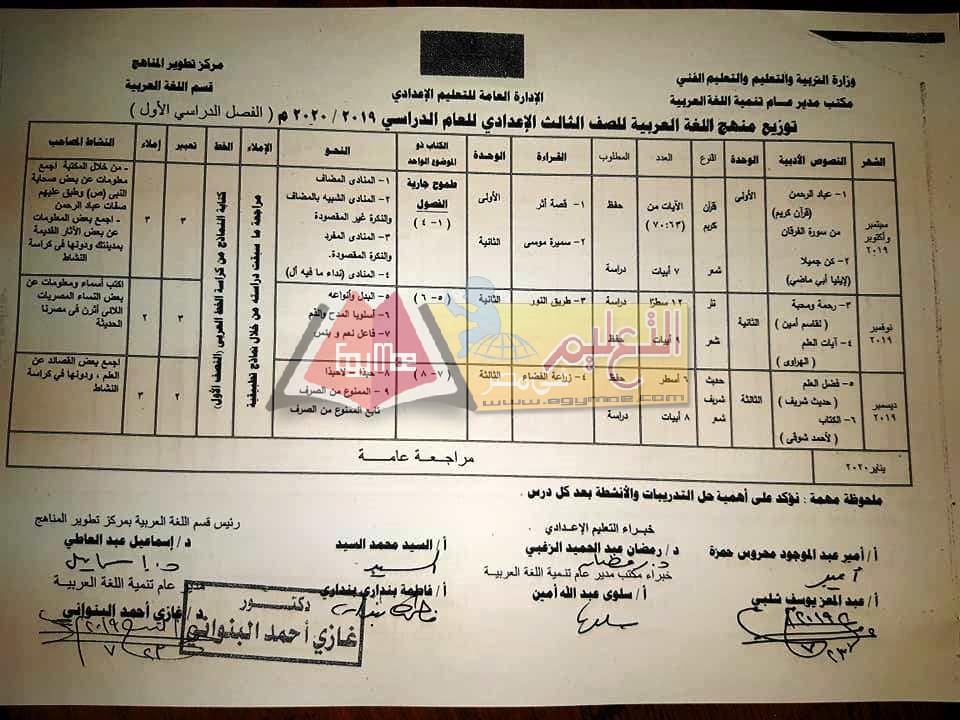 وزارة التربية والتعليم والتعليم الفني
مكتب مدير عام تنمية اللغة العربية
الإدارة العامة للتعليم الإعدادي
مركز تطوير المناهج
قسم اللغة العربية
توزيع منهج اللغة العربية للصف الثالث الإعدادي للعام الدراسي ٢٠١٩ / ٢٠٢٠ م ( الفصل الدراسي الأول )
الشهر النصوص الأدبية الوحدة الفرع العدد المطلوب القراءة الوحدة الكتاب ذو الموضوع الواحد النحو الإملاء الخط تعبير إملاء النشاط المصاحب
سبتمبر وأكتوبر ٢٠١٩
١- عباد الرحمن
(قرآن كريم)
من سورة الفرقان
٢- كن جميلا
(لإيليا أبي ماضي)
الأولى
قرآن كريم
شعر
الآيات من (٦٣:٧٠)
٧ أبيات
حفظ
دراسة
١- قصة أثر
٢- سميرة موسى
الأولى
الثانية
طموح جارية
الفصول
(١- ٤)
١- المنادى المضاف
٢- المنادى الشبيه بالمضاف
والنكرة غير المقصودة
٣- المنادى المفرد
والنكرة المقصودة.
٤- المنادى (نداء ما فيه أل)
مراجعة ما سبقت دراسته من خلال نماذج تطبيقية
كتابة النماذج من كراسة الخط العربي (النصف الأول)
٣
٣
- من خلال المكتبة اجمع
معلومات عن بعض صحابة
النبي (ص) وطبق عليهم
صفات عباد الرحمن
- اجمع بعض المعلومات
عن بعض الآثار القديمة
بمدينتك ودونها في كراسة
النشاط
نوفمبر ٢٠١٩
٣- رحمة ومحبة
(لقاسم أمين)
٤- آيات العلم
(الهراوي)
الثانية
نثر
شعر
١٢ سطرًا
٩ أبيات
دراسة
حفظ
٣- طريق النور
الثانية
(٥- ٦)
٥- البدل وأنواعه
٦- أسلوبا المدح والذم
٧- فاعل نعم و بئس
٣
٢
اكتب أسماء ومعلومات عن
بعض النساء المصريات
اللاتي أثرن في مصرنا
الحديثة
ديسمبر ٢٠١٩
٥- فضل العلم
(حديث شريف)
٦- الكتاب
(لأحمد شوقي)
الثالثة
حديث شريف
شعر
٦ أسطر
٨ أبيات
حفظ
دراسة
٤- زراعة الفضاء
الثالثة
(٧- ٨)
٨- حبذا – لاحبذا
٩- الممنوع من الصرف
تابع الممنوع من الصرف
٢
٣
اجمع بعض القصائد عن
العلم ، ودونها في كراسة
النشاط
يناير ٢٠٢٠
مراجعة عامة
ملحوظة مهمة : نؤكد على أهمية حل التدريبات والأنشطة بعد كل درس .
خبراء التعليم الإعدادي
رئيس قسم اللغة العربية بمركز تطوير المناهج
أ/ أمير عبد الموجود محروس حمزة
د/ رمضان عبد الحميد الزغبي
أ/ السيد محمد السيد
د/ إسماعيل عبد العاطي
خبراء مكتب مدير عام تنمية اللغة العربية
مدير عام تنمية اللغة العربية
أ/ عبد المعز يوسف شلبي
أ/ سلوى عبد الله أمين
أ/ فاطمة بنداري بنداري
د/ غازي أحمد البنواني
دكتور
غازي أحمد البنواني
التعليم في مصر
EgyMoe
www.egymoe.com